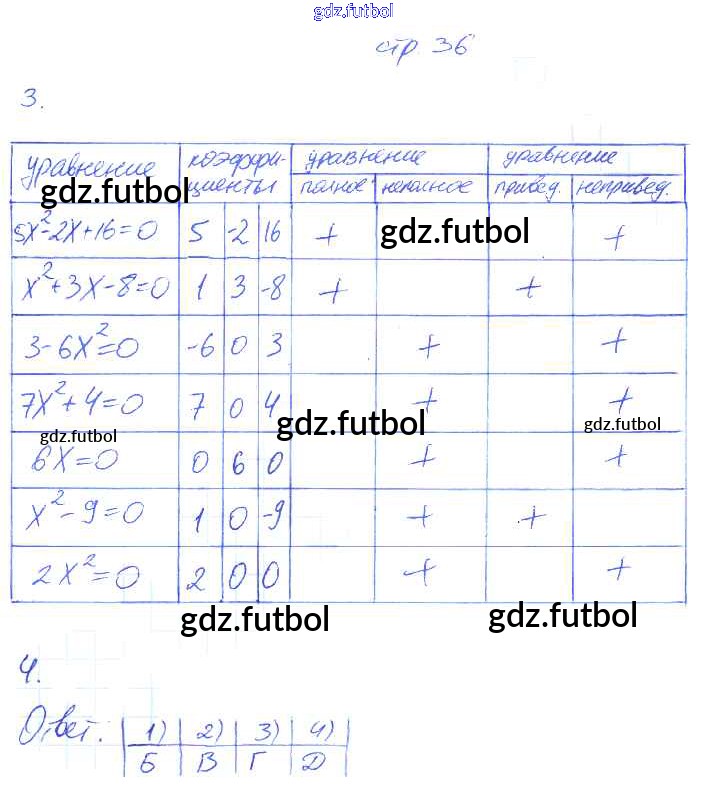 gdz.futbol
стр 36
3.
уравнение коэффи- уравнение уравнение
gdz.futbol циенты полное неполное привед. непривед.
5x²-2x+16=0 5 -2 16 + gdz.futbol +
x²+3x-8=0 1 3 -8 + +
3-6x²=0 -6 0 3 + +
7x²+4=0 7 0 4 + +
gdz.futbol gdz.futbol gdz.futbol
6x=0 0 6 0 + +
x²-9=0 1 0 -9 + +
2x²=0 2 0 0 + +
gdz.futbol gdz.futbol
4.
Ответ: 1) 2) 3) 4)
Б В Г Д